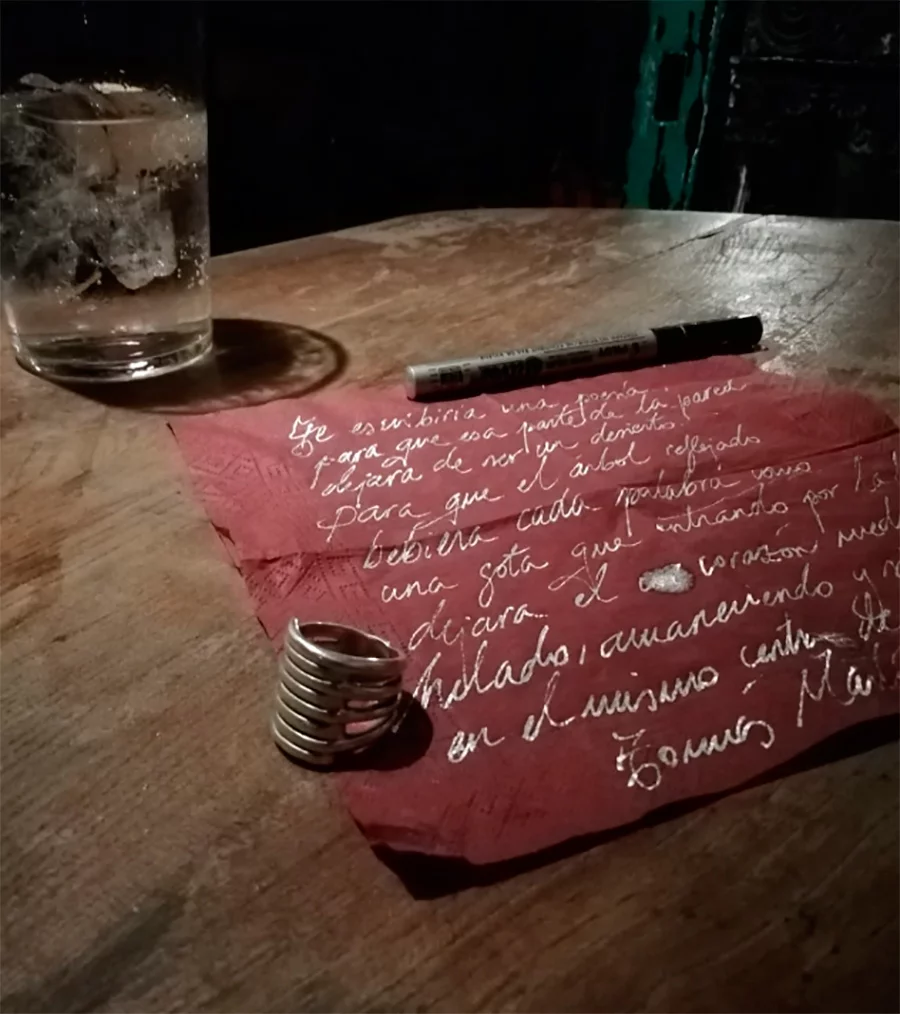 PILOT
Te escribiría una poesía
para que esa parte de la pared
dejara de ser un desierto.
para que el árbol reflejado
bebiera cada palabra como
una gota que entrando por la
dejara el corazón
helado, amaneciendo y
en el mismo centro de
Tomás